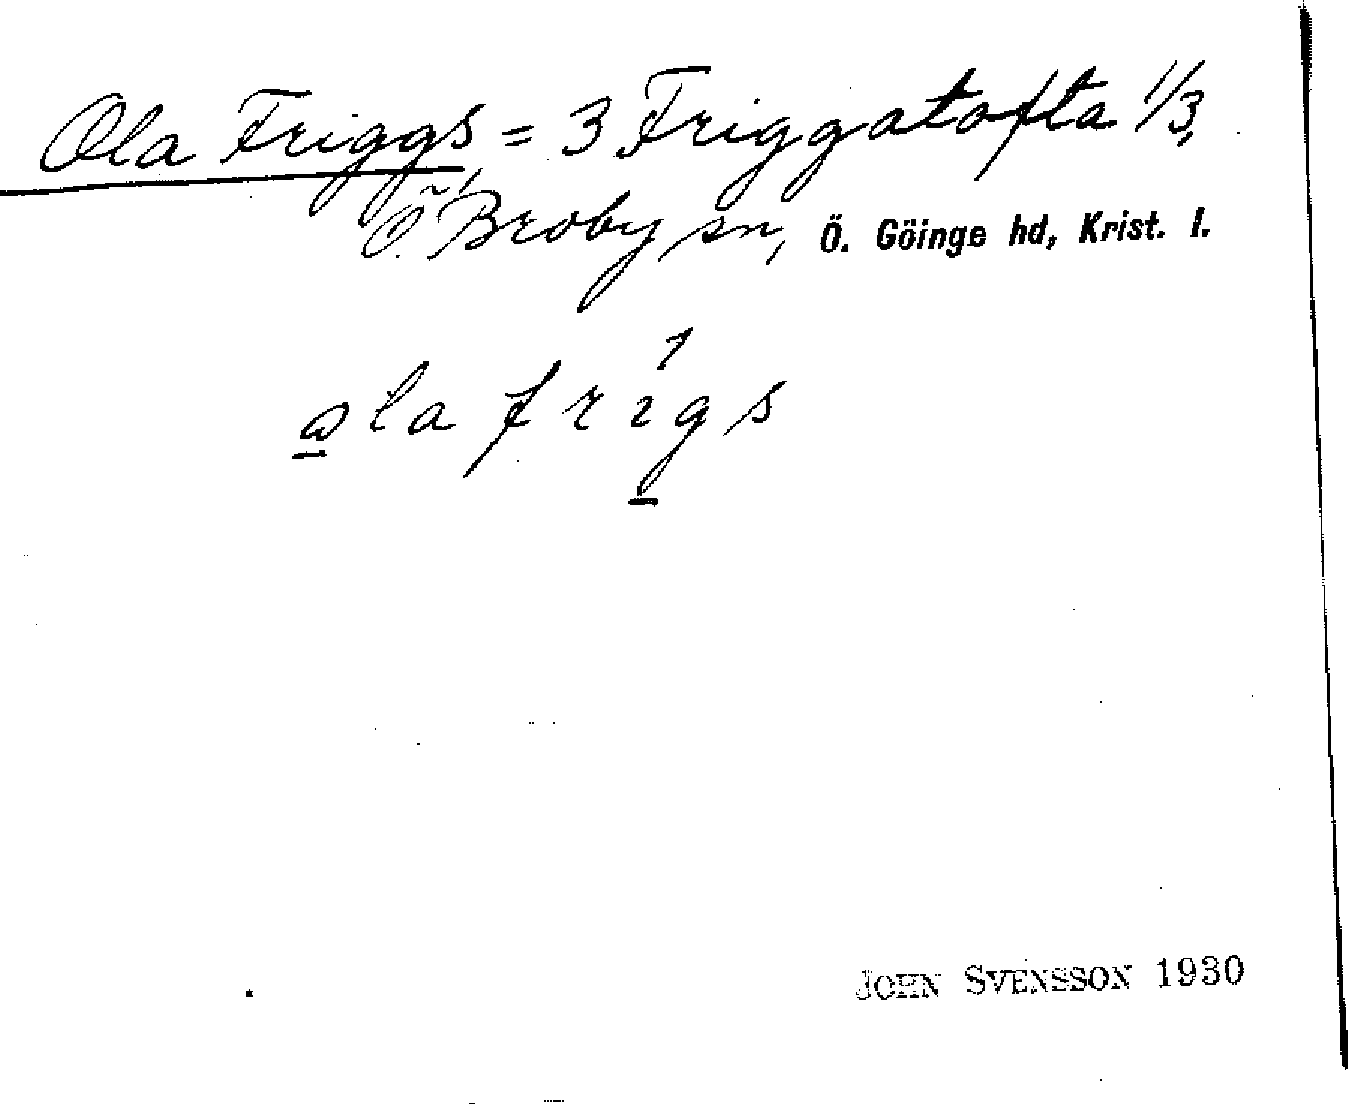 Ola Friggs = 3 Friggatofta 1/3,
Ö. Broby sn, Ö. Göinge hd, Krist. l.
ola frigs
JOHN SVENSSON 1930